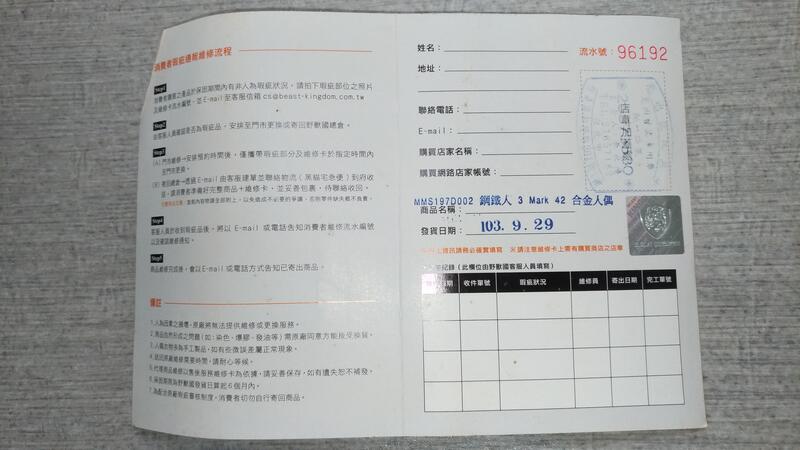 消費者瑕疵通報維修流程
Step1
消費者購買之產品於保固期間內有非人為瑕疵狀況，請拍下瑕疵部位之照片
及維修卡流水編號，並E-mail至客服信箱cs@beast-kingdom.com.tw
Step2
待客服人員確認是否為瑕疵品，安排至門市更換或寄回野獸國總倉。
Step3
(A) 門市維修→安排預約時間後，僅攜帶瑕疵部分及維修卡於指定時間內
至門市更換。
(B) 寄回總倉→透過E-mail由客服建單並聯絡物流(黑貓宅急便)到府收
貨，請消費者準備好完整商品+維修卡，並妥善包裹，待聯絡收回。
Step4
客服人員於收到瑕疵品後，將以 E-mail 或電話告知消費者維修流水編號
以及確認維修通知。
Step5
商品維修完成後，會以E-mail或電話方式告知已寄出商品。
備註
1.人為因素之損壞，原廠將無法提供維修或更換服務。
2.商品自然形成之問題(如:染色、爆膠、發油等)需原廠同意方能接受換貨。
3.人偶衣物多為手工製品，如有些微誤差屬正常現象。
4.送回原廠維修需要時間，請耐心等候。
5.代理商品維修以售後服務維修卡為依據，請妥善保存，如有遺失恕不補發。
6.保固期限為野獸國發貨日算起6個月內。
7.為配合原廠瑕疵審核制度，消費者切勿自行寄回商品。
姓名：
流水號：96192
地址：
聯絡電話：
E-mail：
購買店家名稱：
購買網路店家帳號：
MMS197D002 鋼鐵人 3 Mark 42 合金人偶
商品名稱：
發貨日期： 103. 9. 29
※以上資訊請務必確實填寫 ※請注意維修卡上需有購買商店之店章
紀錄 (此欄位由野獸國客服人員填寫)
日期 收件單號 瑕疵狀況 維修員 寄出日期 完工單號